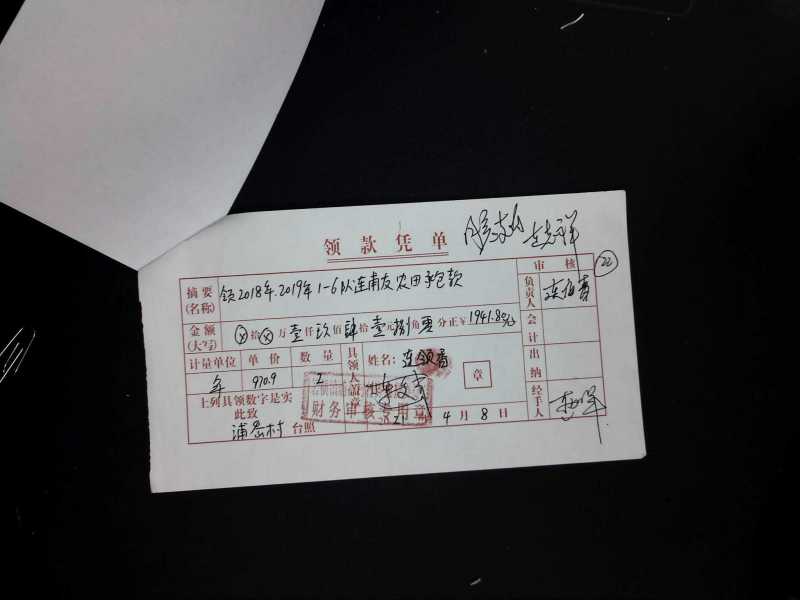 领款凭单
审核
22
摘要(名称) 领2018年.2019年1-6队连甫友农田承包款
负责人
金额(大写) ⓧ拾ⓧ万壹仟玖佰肆拾壹元捌角零分正￥1941.80
会计
计量单位 单价 数量 具领人盖章 姓名：连领香
出纳
年 970.9 2 章
上列具领数字是实
此致
财务审核专用章
经手人
21 4月8日
浦岙村 台照